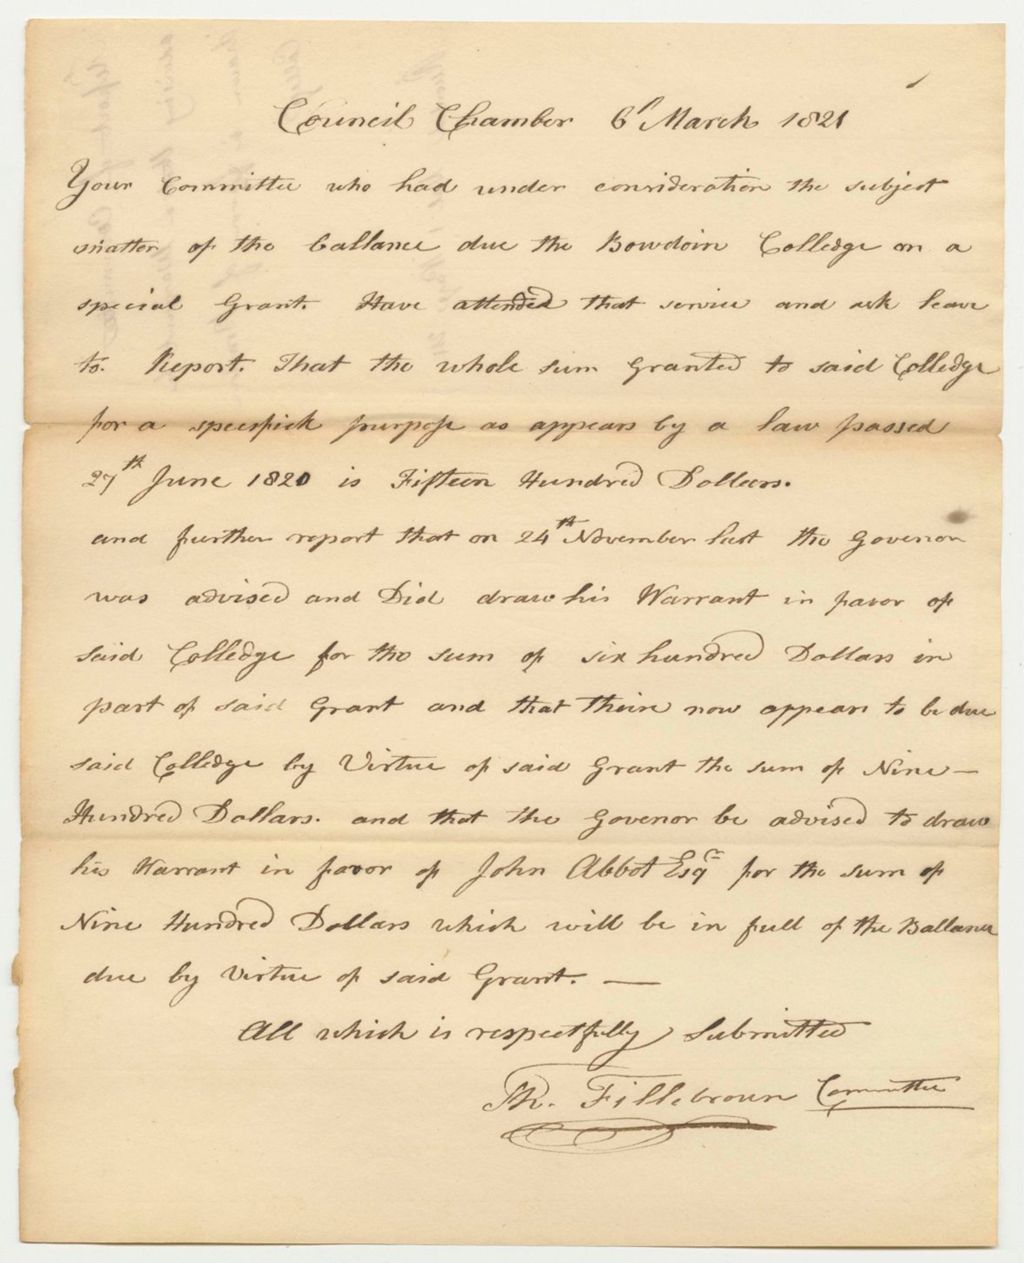 Council Chamber 6th March 1821
Your Committee who had under consideration the subject
matter of the ballance due the Bowdoin Colledge on a
special Grant. Have attended that service and ask leave
to. Report. That the whole sum Granted to said Colledge
for a specifick purpose as appears by a law passed
27th June 1820 is Fifteen Hundred Dollars.
and further report that on 24th November last the Govenor
was advised and Did draw his Warrant in favor of
said Colledge for the sum of six hundred Dollars in
part of said Grant and that their now appears to be due
said Colledge by Virtue of said Grant the sum of Nine—
Hundred Dollars. and that the Govenor be advised to draw
his Warrant in favor of John Abbot Esqr for the sum of
Nine Hundred Dollars which will be in full of the Ballance
due by Virtue of said Grant. —
All which is respectfully Submitted
Th. Fillebrown Committee